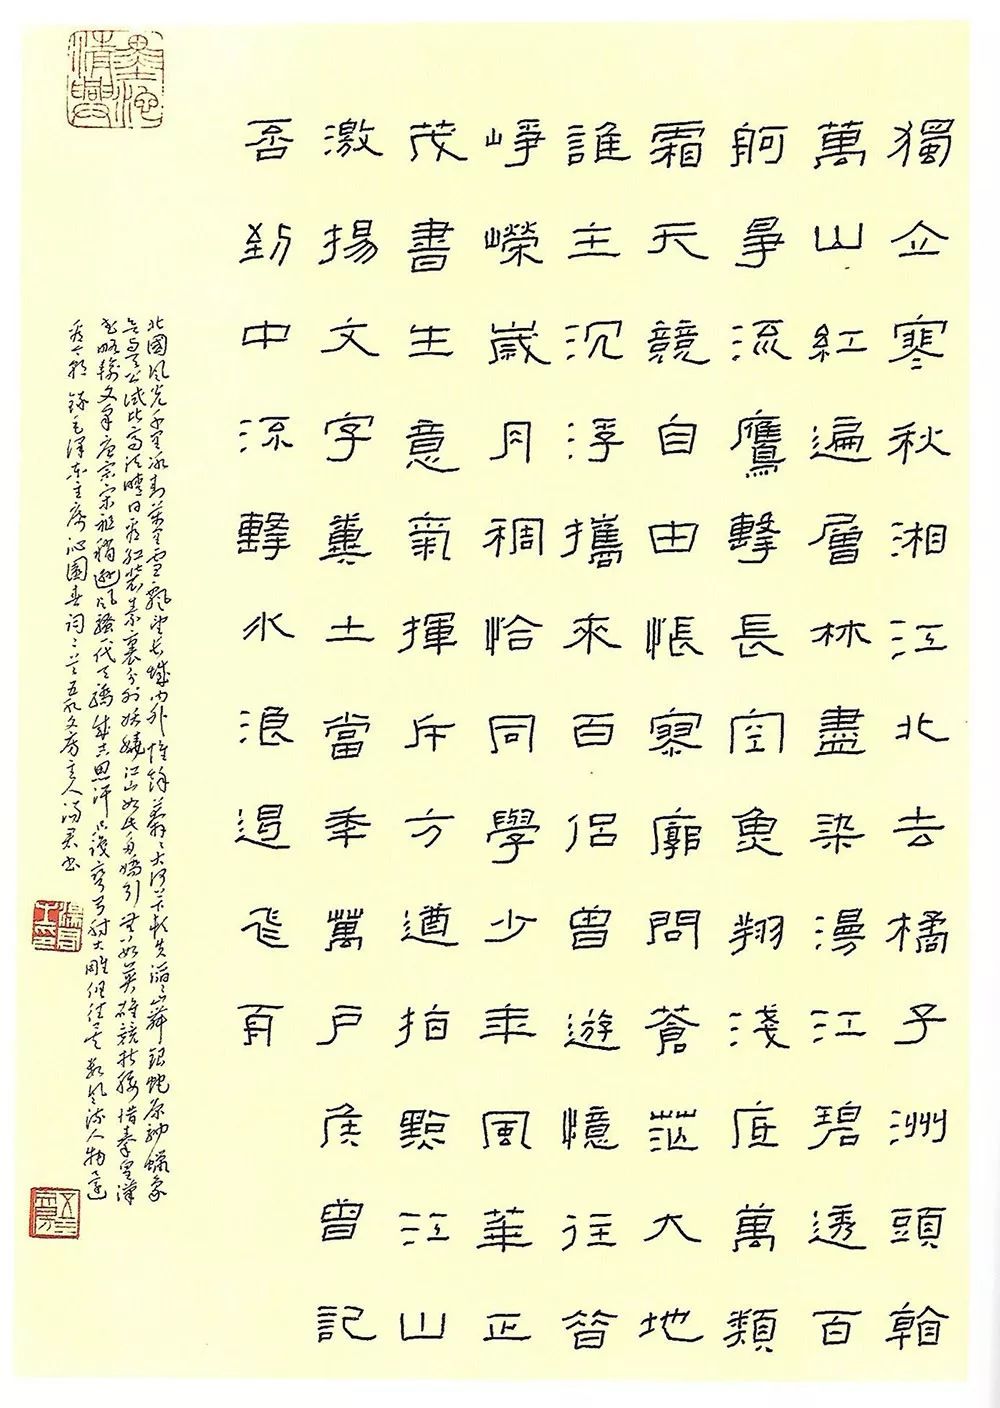 獨立寒秋湘江北去橘子洲頭看
萬山紅遍層林盡染漫江碧透百
舸爭流鷹擊長空魚翔淺底萬類
霜天競自由悵寥廓問蒼茫大地
誰主沉浮攜來百侶曾遊憶往昔
崢嶸歲月稠恰同學少年風華正
茂書生意氣揮斥方遒指點江山
激揚文字糞土當年萬戶侯曾記
否到中流擊水浪遏飛舟
北國風光千里冰封萬里雪飄望長城內外惟餘莽〻大河上下頓失滔〻山舞銀蛇原馳蠟象
欲與天公試比高須晴日看紅裝素裹分外妖嬈江山如此多嬌引無數英雄競折腰惜秦皇漢
武略輸文采唐宗宋祖稍遜風騷一代天驕成吉思汗只識彎弓射大雕俱往矣數風流人物還
看今朝 錄毛澤東主席沁園春詞二首 文房主人湯君書